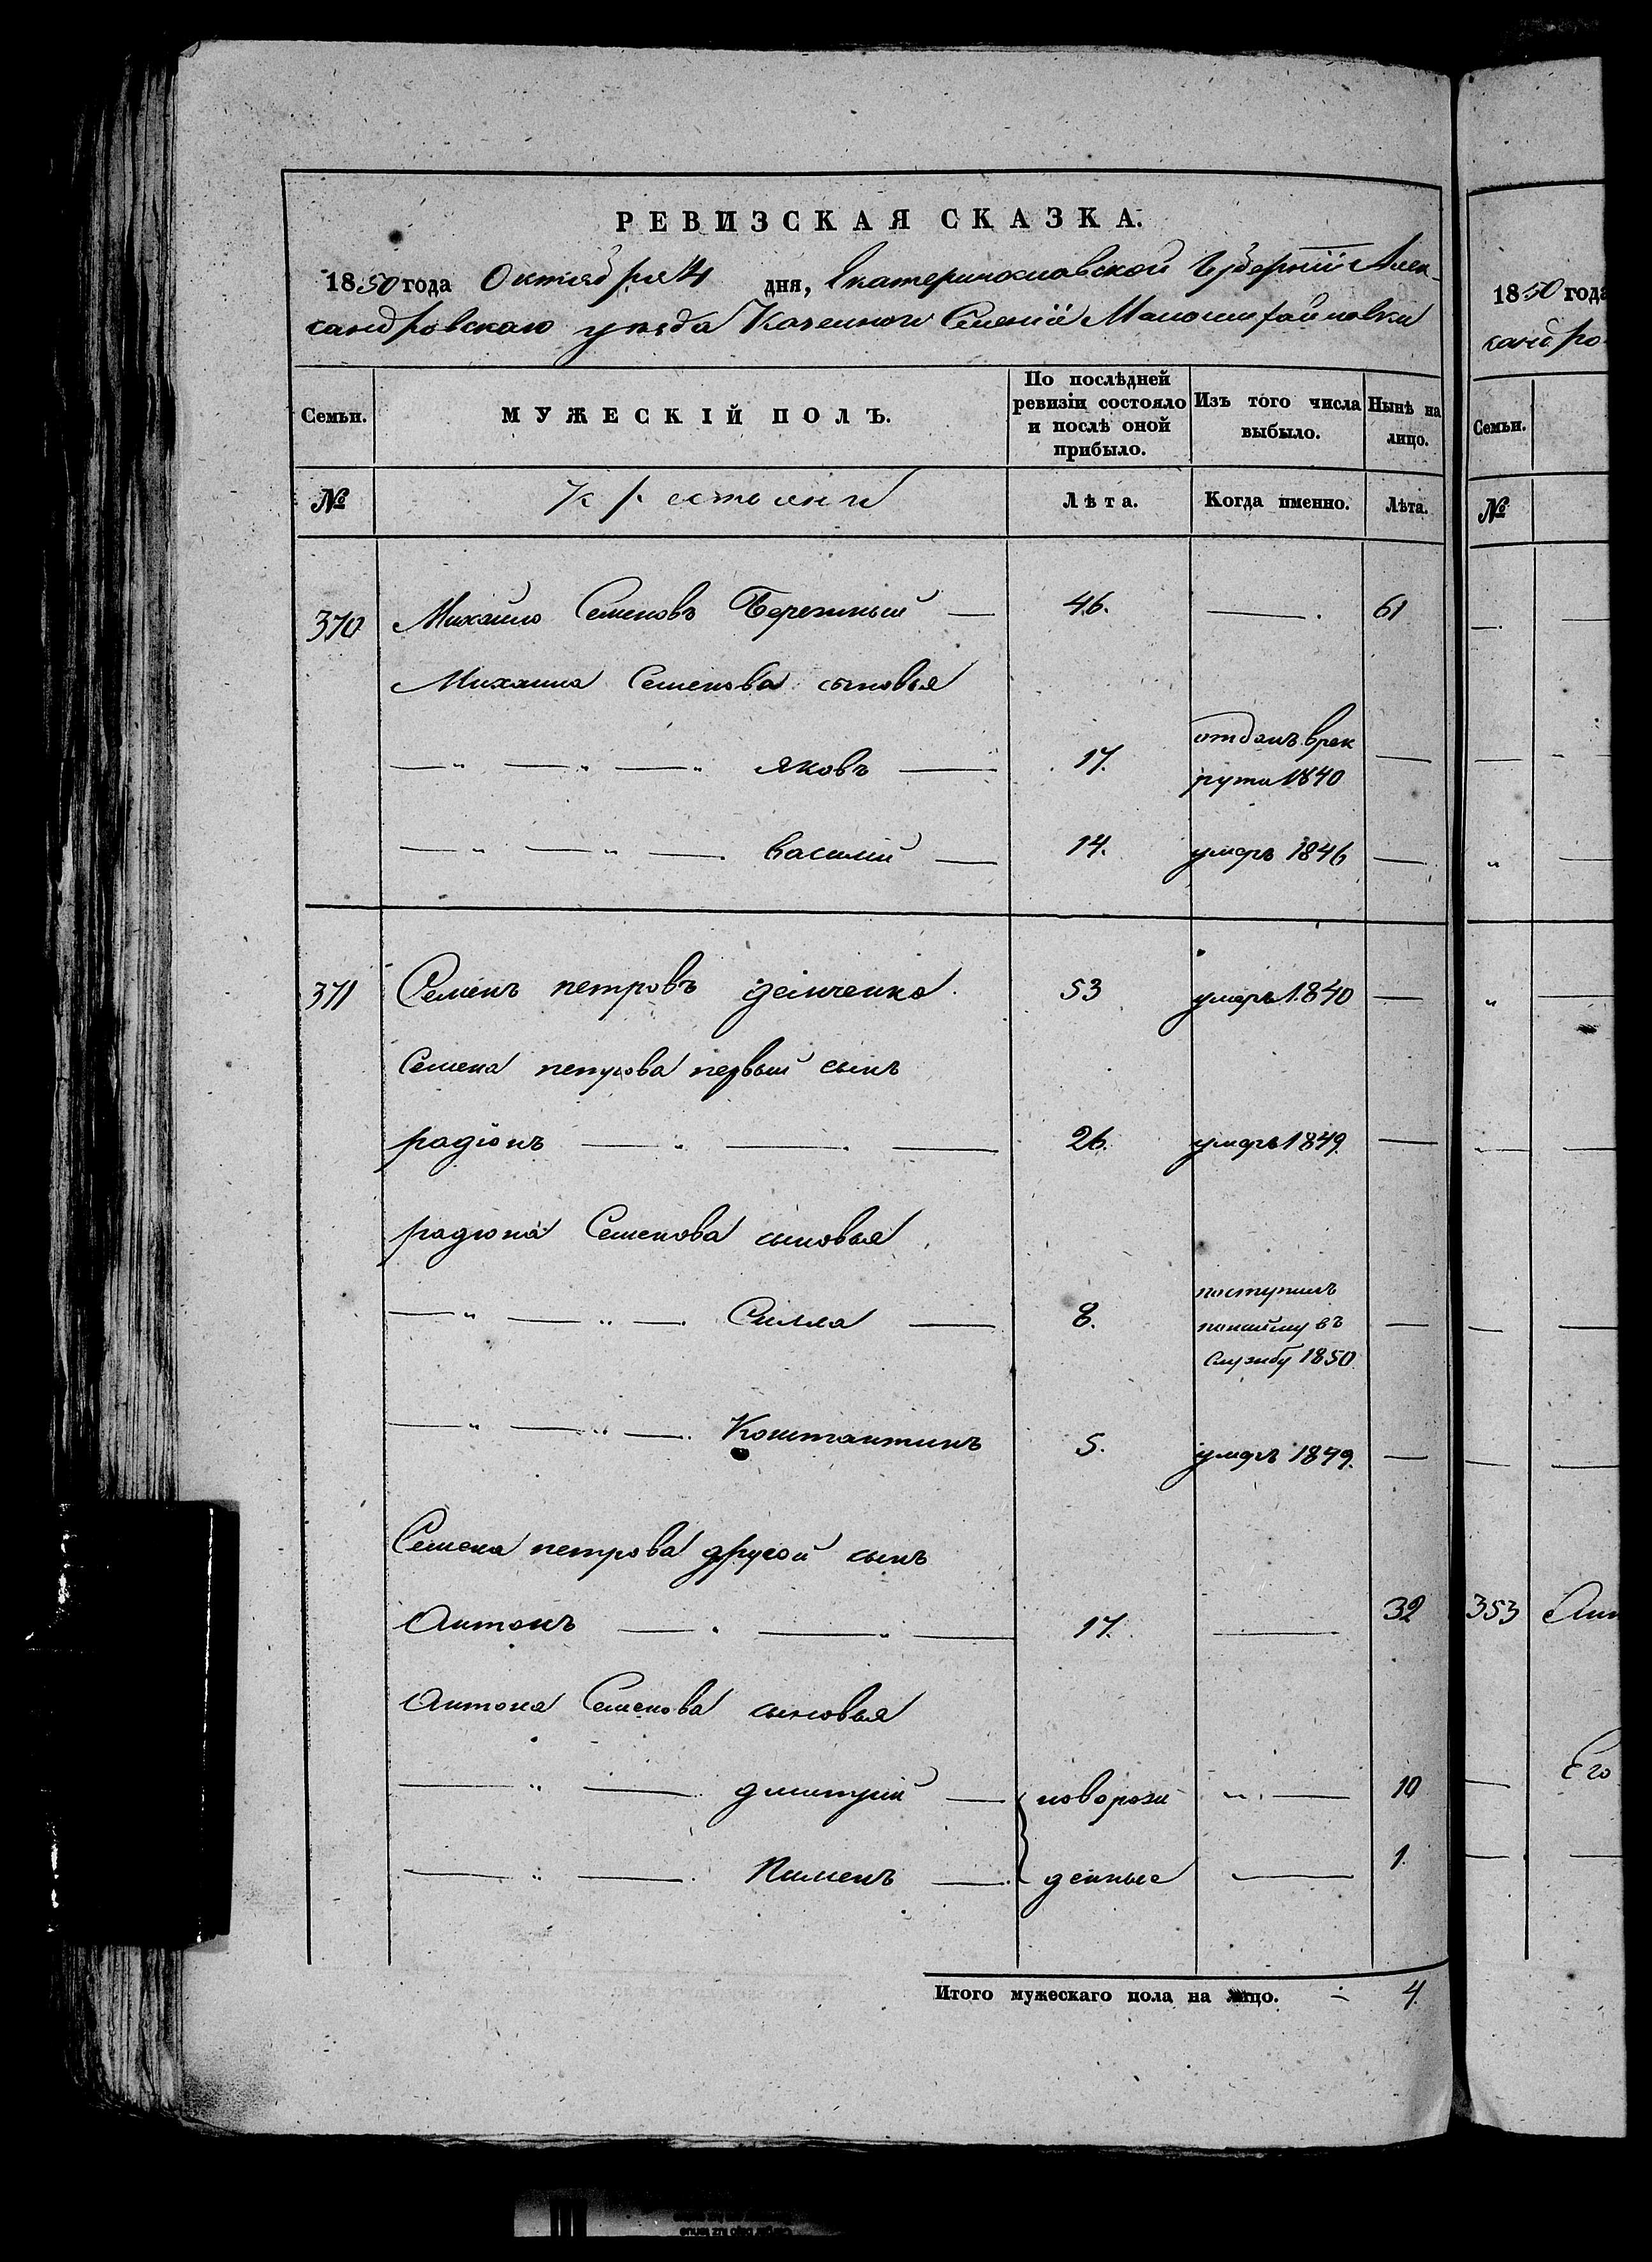 РЕВИЗСКАЯ СКАЗКА.
1850 года Октября 4 дня, Екатеринославской Губерніи Алек-
сандровскаго уезда Казенного Селенія
Семьи. МУЖЕСКІЙ ПОЛЪ. По послѣдней ревизіи состояло и послѣ оной прибыло. Изъ того числа выбыло. Нынѣ на лицо.
№ Крестьяни Лѣта. Когда именно. Лѣта.
370 Михайло Семеновъ Бережный — 46. — 61
Михаила Семенова сыновья
— " — " — " яковъ — 17. отданъ врек
рути 1840 —
— " — " — василий — 14. умеръ 1846 —
371 Семенъ петровъ 53 умеръ 1840 —
Семена петрова первый сынъ
радіонъ — " — " — 26. умеръ 1849. —
радіона Семенова сыновья
— " — " — Силла — 8. поступилъ
понайму въ
службу 1850. —
— " — " — Константинъ 5. умеръ 1849. —
Семена петрова другой сынъ
Антонъ — " — " — 17. — 32
Антона Семенова сыновья
— " — дмитрий — новорож " — 10
— " — Пименъ — денные — 1.
Итого мужескаго пола на лицо. 4.
1850 года
сандро
Семьи.
№
353 Ан
Его